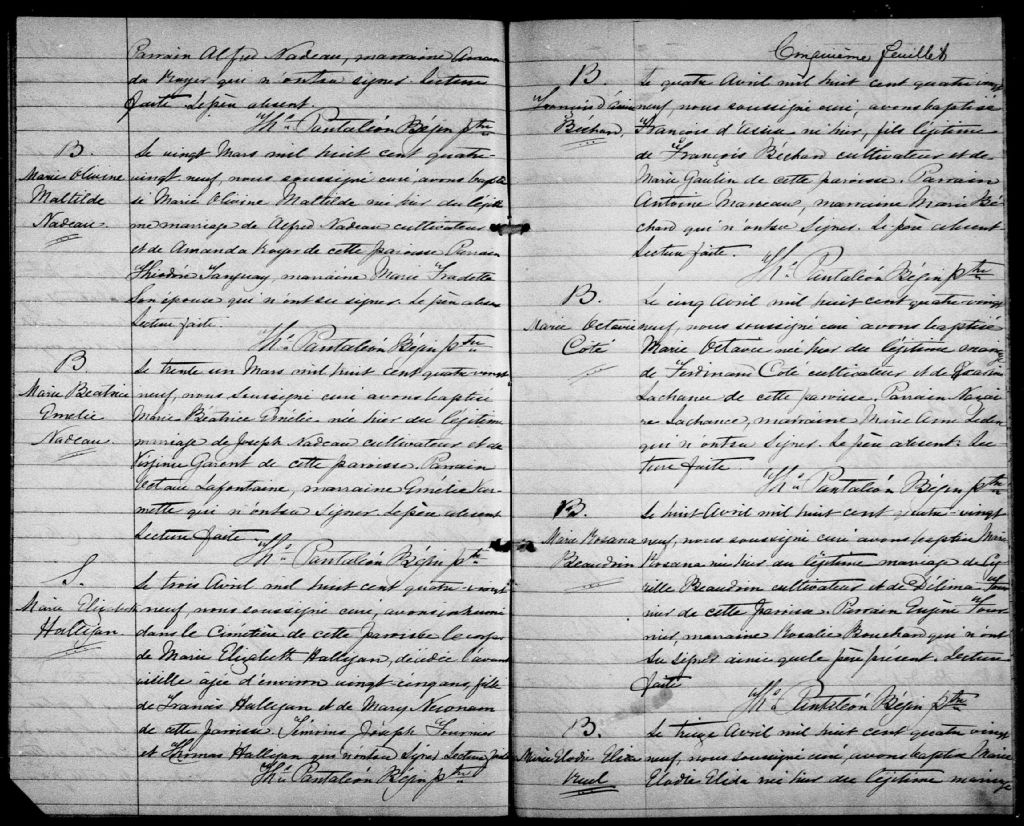 Parrain Alfred Nadeau, marraine Aman
da Royer qui n'ont su signer. Lecture
faite. Le père absent.
Ths. Pantaléon Bégin ptre
B.
Marie Olivine
Matilde
Nadeau
Le vingt Mars mil huit cent quatre-
vingt neuf, nous soussigné curé, avons bapti
sé Marie Olivine Matilde née hier du légiti
me mariage de Alfred Nadeau cultivateur
et de Amanda Royer de cette paroisse Parrain
Tanguay, marraine Marie Fradette
son épouse qui n'ont su signer. Le père absent
Lecture faite.
Ths. Pantaléon Bégin ptre
B
Marie Béatrice
Emélie
Nadeau.
Le trente un Mars mil huit cent quatre vingt
neuf, nous soussigné curé avons baptisé
Marie Béatrice Emélie née hier du légitime
mariage de Joseph Nadeau cultivateur et de
Virginie Garent de cette paroisse. Parrain
Octave Lafontaine, marraine Emélie
mette qui n'ont su signer. Le père absent
Lecture faite
Ths. Pantaléon Bégin ptre
S.
Marie Elizabeth
Halligan
Le trois Avril mil huit cent quatre vingt
neuf, nous soussigné curé, avons inhumé
dans le Cimetière de cette paroisse le corps
de Marie Elizabeth Halligan, décédée l'avant
veille agée d'environ vingt-cinq ans, fille
de Francis Halligan et de Mary
de cette paroisse Témoins Joseph Fournier
et Thomas Halligan qui n'ont su signer Lecture faite
Ths. Pantaléon Bégin ptre
Cinquième feuillet
B.
Béchard.
Le quatre Avril mil huit cent quatre vingt
neuf, nous soussigné curé, avons baptisé
François d'Assise né hier, fils légitime
de François Béchard cultivateur et de
Marie Gaulin de cette paroisse. Parrain
Antoine Marceau, marraine Marie Bé
chard qui n'ont su signer. Le père absent
Lecture faite.
Ths. Pantaléon Bégin ptre
B.
Marie Octavie
Coté
Le cinq Avril mil huit cent quatre-vingt
neuf, nous soussigné curé avons baptisé
Marie Octavie née hier du légitime mariage
de Ferdinand Coté cultivateur et de
Lachance de cette paroisse. Parrain Nazai
re Lachance, marraine Marie Anne
qui n'ont su signer. Le père absent. Lec
ture faite.
Ths. Pantaléon Bégin ptre
B.
Marie Rosana
Beaudoin
Le huit Avril mil huit cent quatre-vingt
neuf, nous soussigné curé avons baptisé Marie
Rosana née hier du légitime mariage de Cy
rille Beaudoin cultivateur et de Délima Four
nier de cette paroisse. Parrain Eugène Four
nier marraine Rosalie Bouchard qui n'ont
su signer ainsi que le père présent. Lecture
faite
Ths. Pantaléon Bégin ptre
B.
Marie Elodie Eliza
Ruel
Le treize Avril mil huit cent quatre vingt
neuf, nous soussigné curé, avons baptisé Marie
Elodie Eliza née hier du légitime mariage